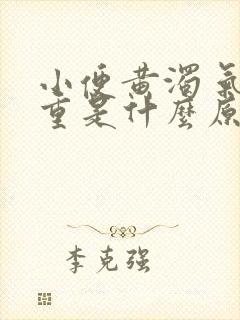 小便黄濁氣
重是什麼原
李克强